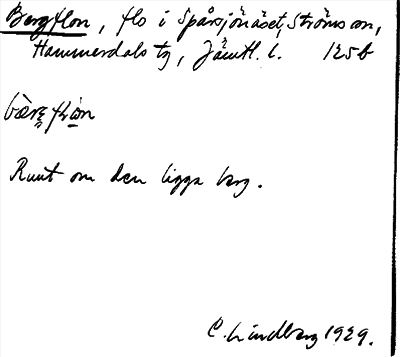 Bergflon, flo i Spårsjönäset, Ströms sn,
Hammerdals tg, Jämtl. l. 125b
Runt om den ligga berg.
C. Lindberg 1929.